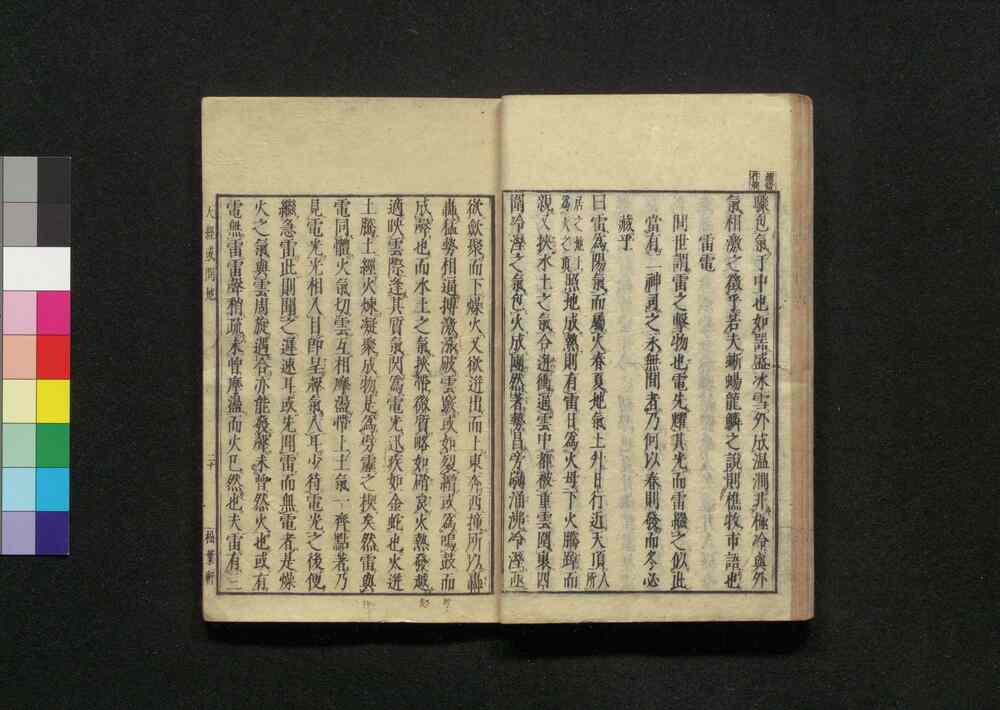 氣相激之徵乎若夫蜥蜴龍鱗之說則樵牧市語也
雷電
問世謂雷之擊物也電先耀其光而雷繼之似此
當有一神司之永無間者乃何以春則發而冬必
藏乎
曰雷為陽氣而屬火春夏地氣上升日行近天頂人所
居之地上為天之頂照地成熱則有雷日為火母下火騰躋而
親又挾水土之氣合迸衝逼雲中都被重雲圍裹四
圍冷溼之氣包火成團然著勢冒旁礴涌沸冷溼
欲歛聚而下燥火又欲迸出而上東奔西撞所以
轟猛勢相逼搏激漲破雲或如裂繒或為鳴鼓而
成聲也而水土之氣挾帶微質略如硝炭火熱發越
適映雲際逢其質氣閃為電光迅疾如金蛇也火迸
土騰土經火煉凝聚成物是為劈靂之挾矣然雷與
電同體火氣切雲互相摩盪帶上土氣一齊點著乃
見電光光相入目即至聲氣入耳少待電光之後便
繼急雷此則聞之遲速耳或先聞雷而無電者是燥
火之氣與雲周旋遇合亦能發聲未嘗然火也或有
電無雷雷聲稍疏未曾摩盪而火已然也夫雷有二
天經或問地
二十
松葉軒